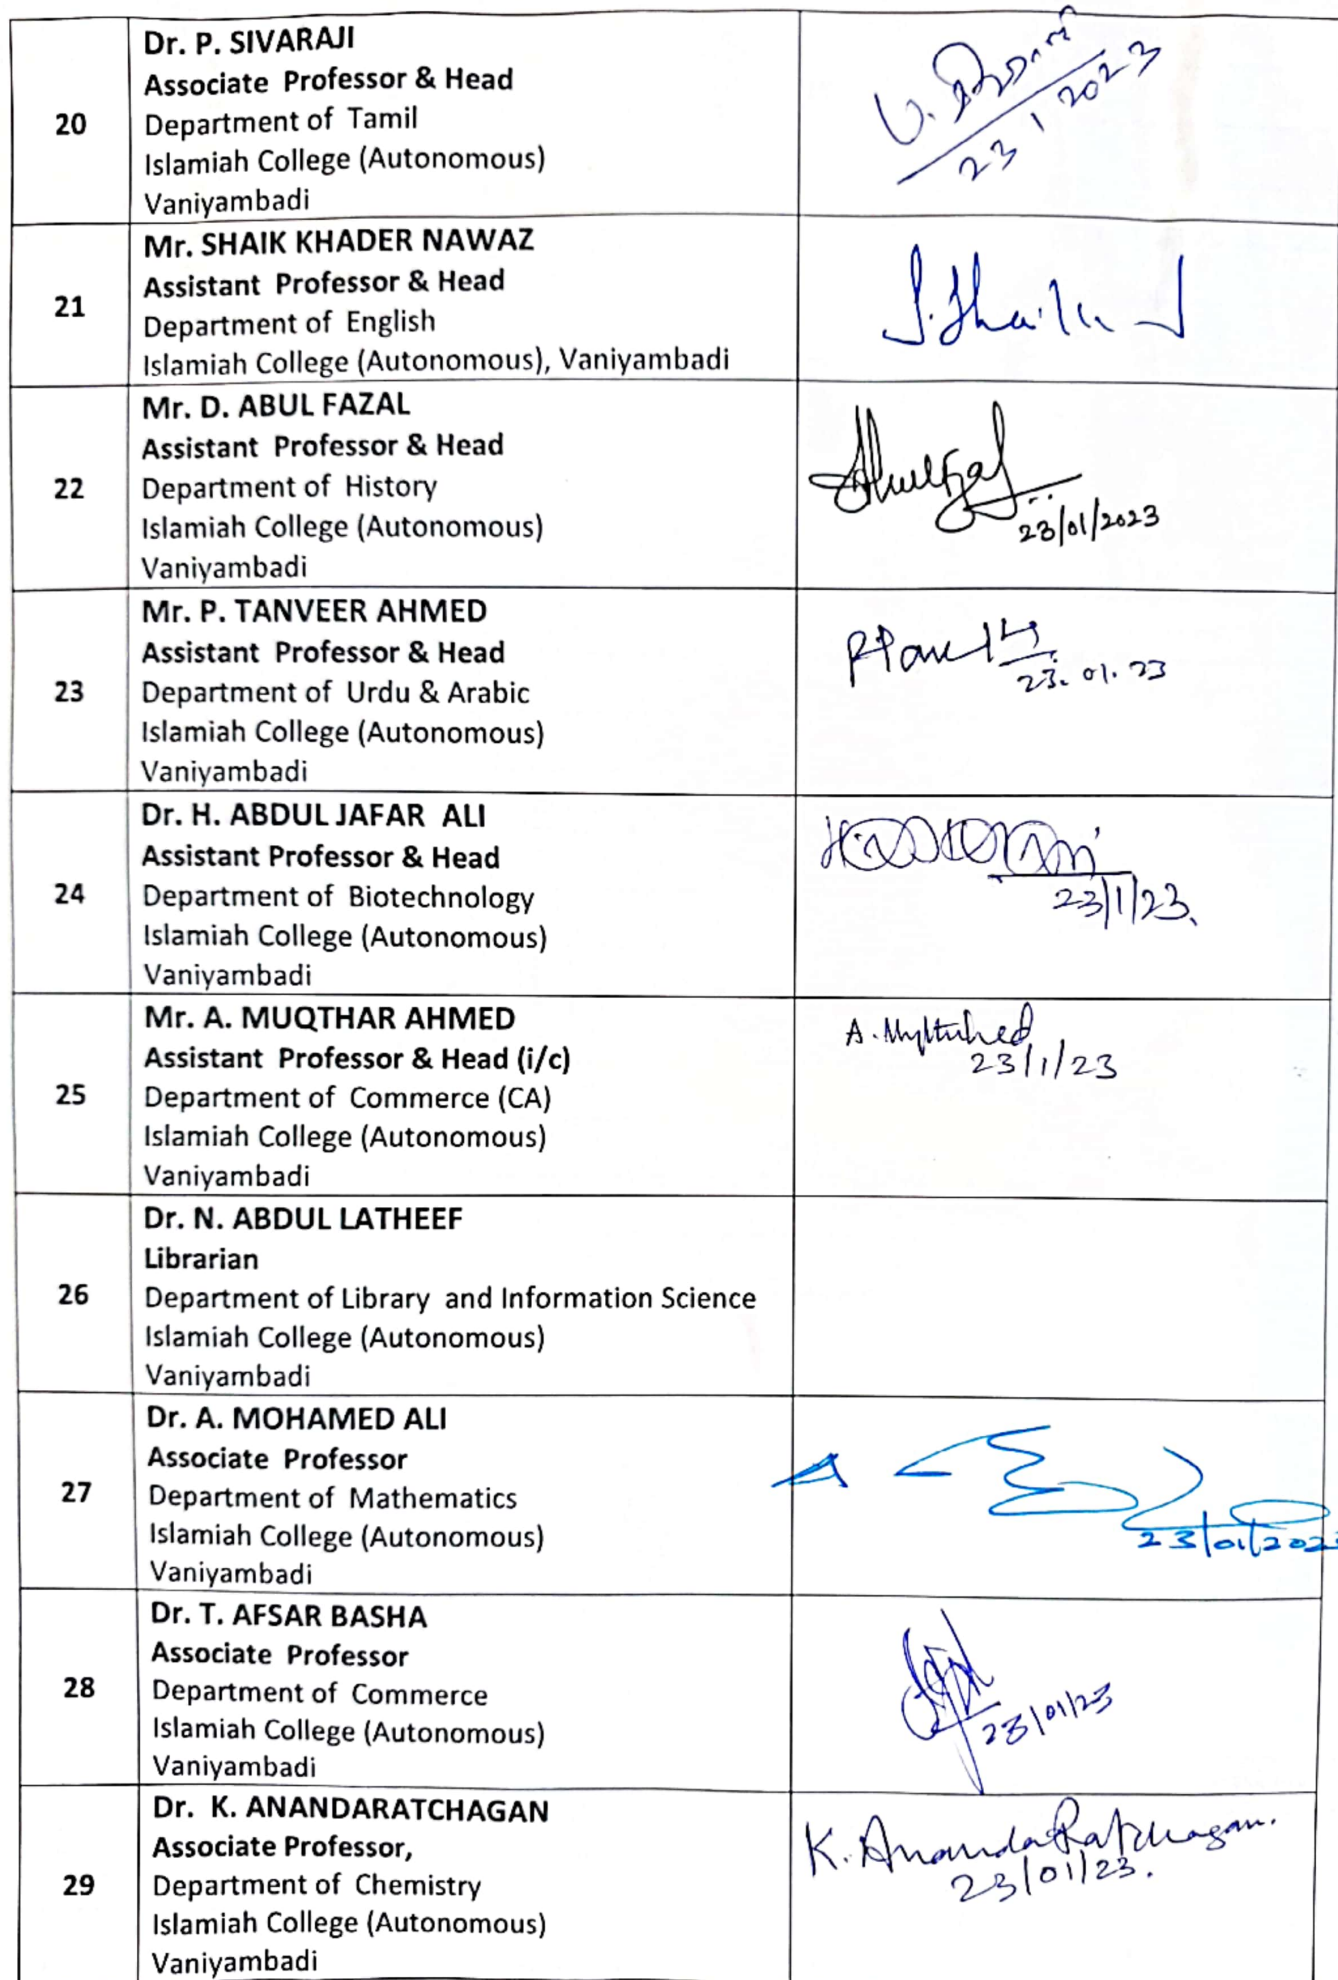 20
Dr. P. SIVARAJI
Associate Professor & Head
Department of Tamil
Islamiah College (Autonomous)
Vaniyambadi
23 1 2023
21
Mr. SHAIK KHADER NAWAZ
Assistant Professor & Head
Department of English
Islamiah College (Autonomous), Vaniyambadi
S. Shaik
22
Mr. D. ABUL FAZAL
Assistant Professor & Head
Department of History
Islamiah College (Autonomous)
Vaniyambadi
23/01/2023
23
Mr. P. TANVEER AHMED
Assistant Professor & Head
Department of Urdu & Arabic
Islamiah College (Autonomous)
Vaniyambadi
23. 01. 23
24
Dr. H. ABDUL JAFAR ALI
Assistant Professor & Head
Department of Biotechnology
Islamiah College (Autonomous)
Vaniyambadi
23/1/23.
25
Mr. A. MUQTHAR AHMED
Assistant Professor & Head (i/c)
Department of Commerce (CA)
Islamiah College (Autonomous)
Vaniyambadi
23/1/23
26
Dr. N. ABDUL LATHEEF
Librarian
Department of Library and Information Science
Islamiah College (Autonomous)
Vaniyambadi
27
Dr. A. MOHAMED ALI
Associate Professor
Department of Mathematics
Islamiah College (Autonomous)
Vaniyambadi
23/01/2023
28
Dr. T. AFSAR BASHA
Associate Professor
Department of Commerce
Islamiah College (Autonomous)
Vaniyambadi
23/01/23
29
Dr. K. ANANDARATCHAGAN
Associate Professor,
Department of Chemistry
Islamiah College (Autonomous)
Vaniyambadi
K. AnandaRatchagan.
23/01/23.